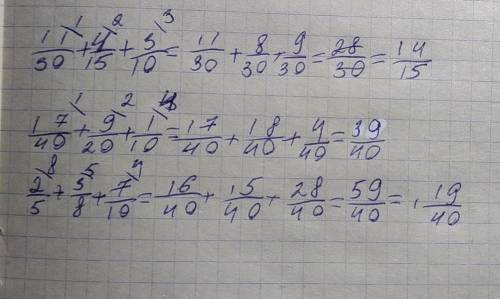 11/30 ^1 + 4/15 ^2 + 3/10 ^3 = 11/30 + 8/30 + 9/30 = 28/30 = 14/15
17/40 ^1 + 9/20 ^2 + 1/10 ^4 = 17/40 + 18/40 + 4/40 = 39/40
2/5 ^8 + 3/8 ^5 + 7/10 ^4 = 16/40 + 15/40 + 28/40 = 59/40 = 1 19/40